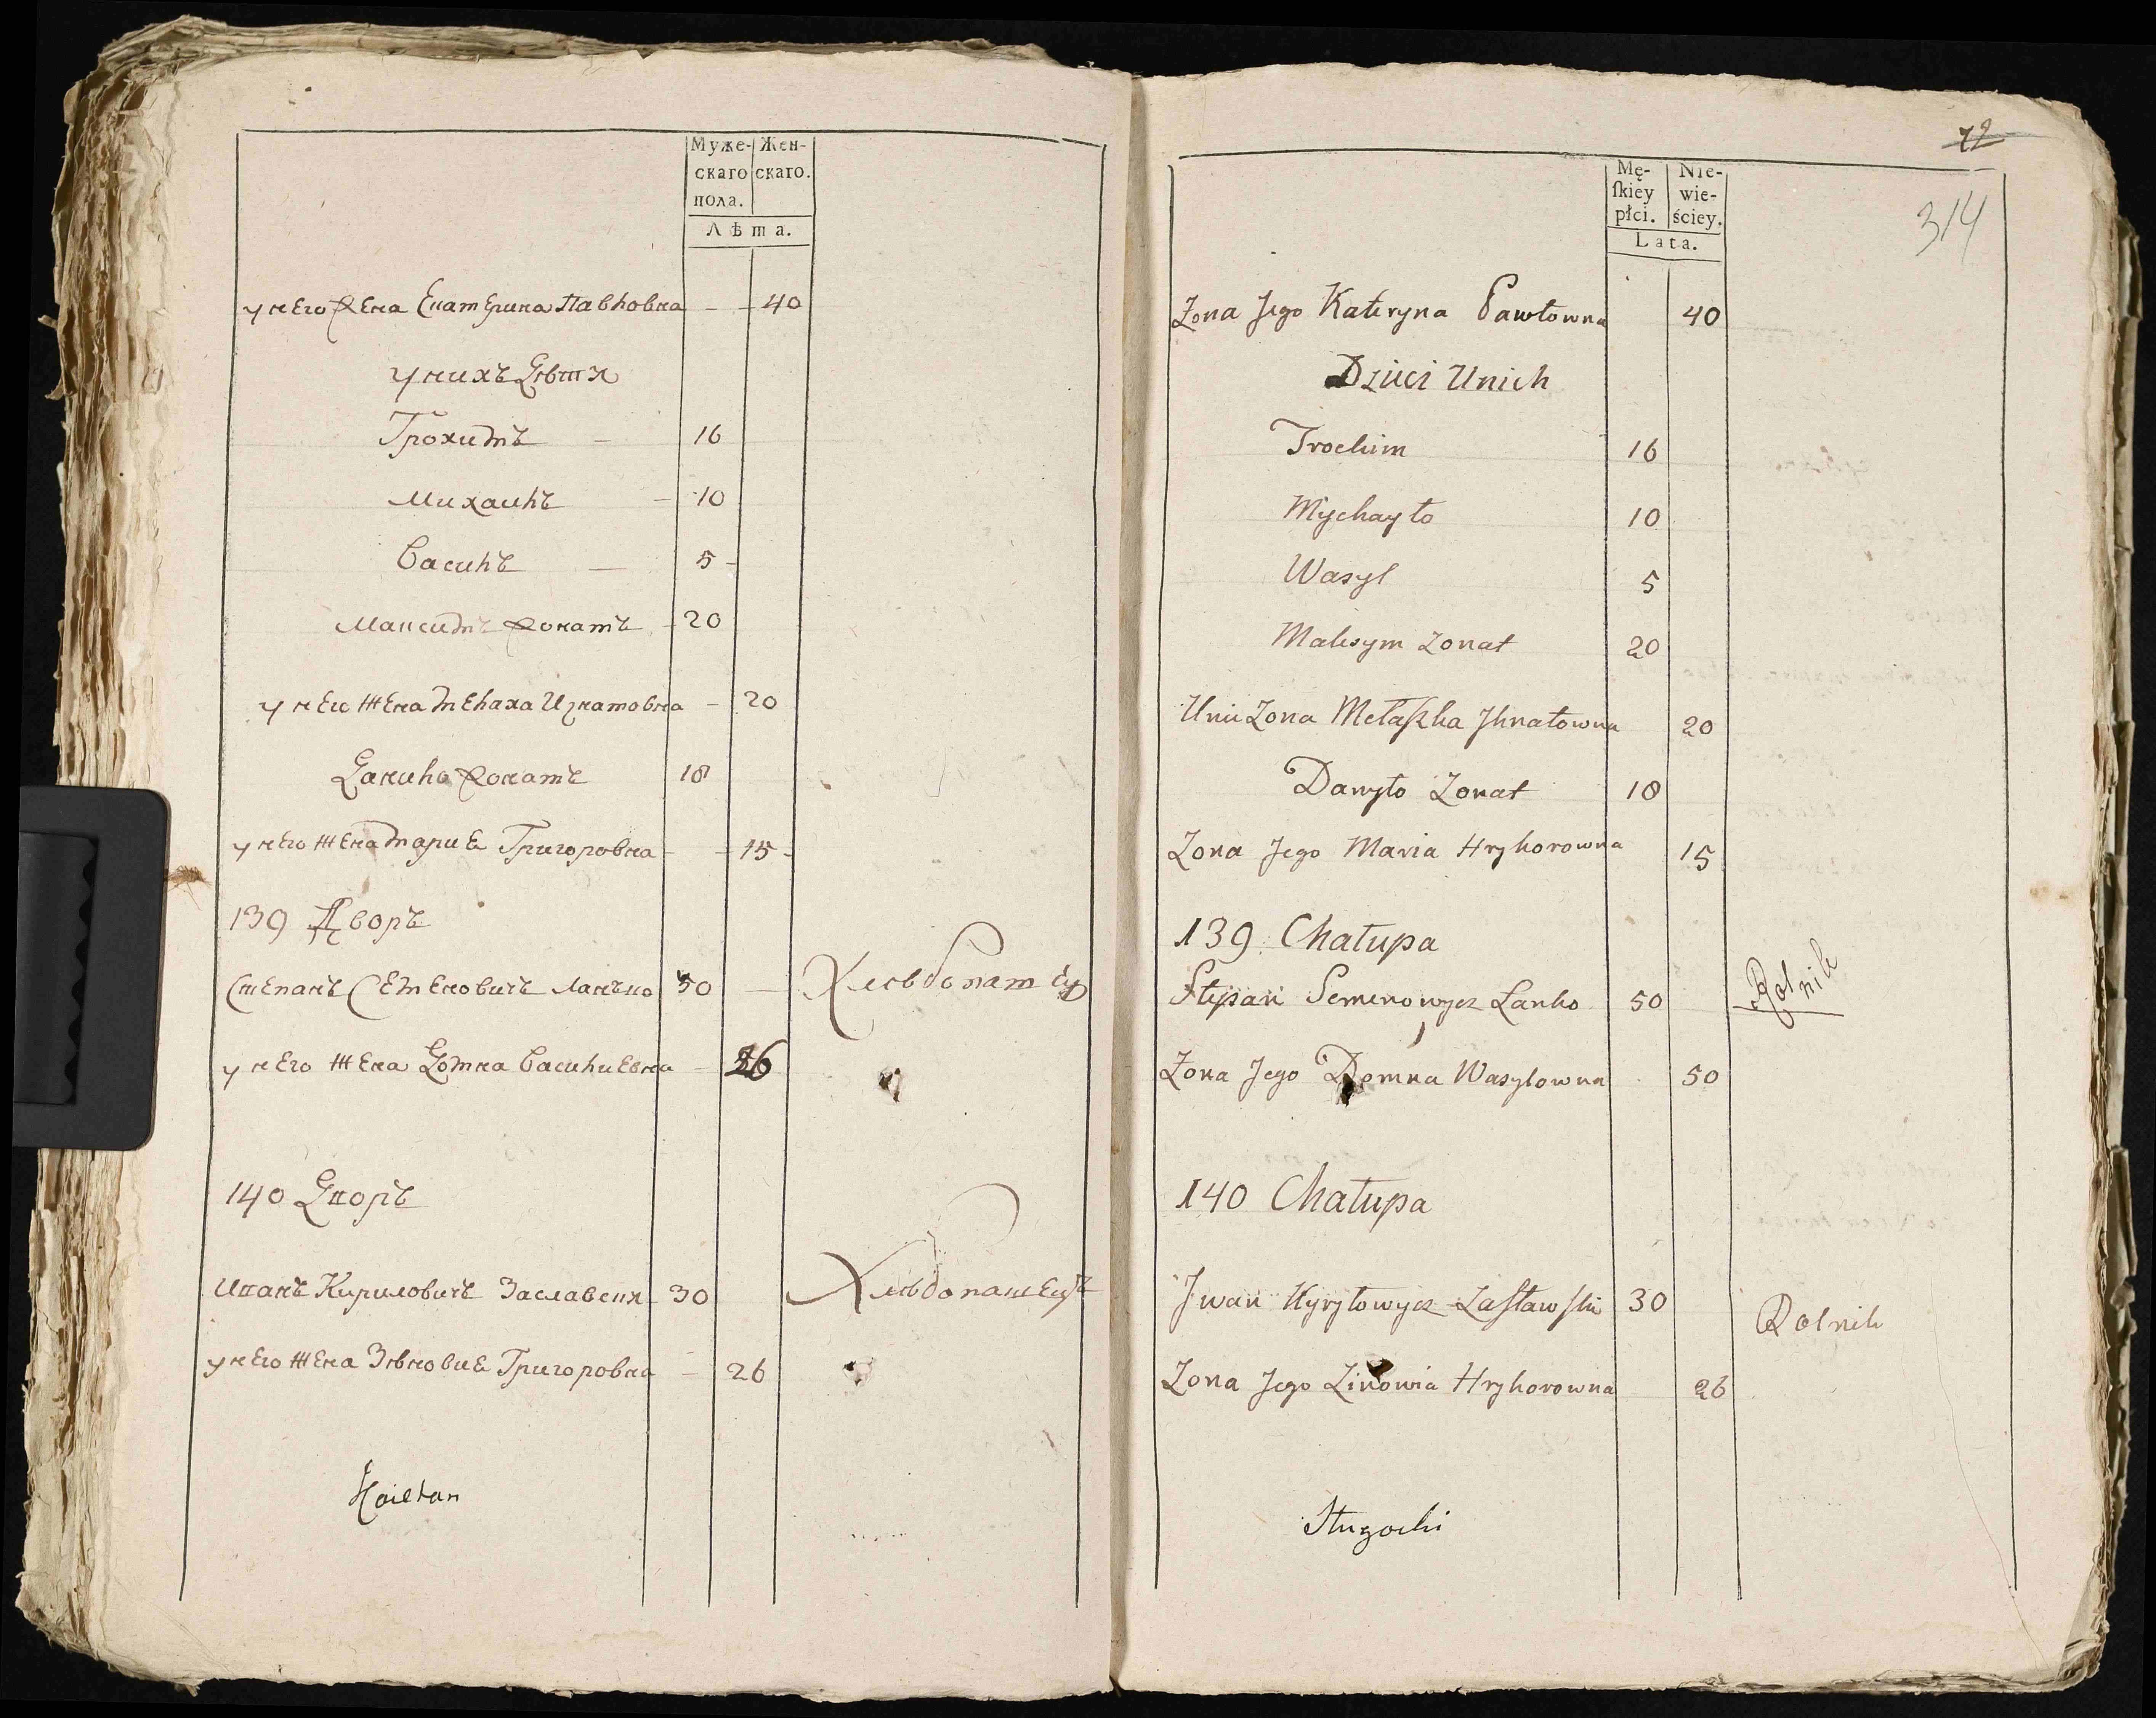 Муже-
скаго
пола.
Жен-
скаго.
Лѣта.
у него жена Екатерина Павловна - - 40
у нихъ Дѣти
Трохимъ - 16
Михаилъ - 10
Василь - 5 -
Максимъ жонатъ - 20
у него жена Мелаха Игнатовна - 20
Данило жонатъ 18
у него жена Мариа Григоровна - - 15 -
139 Дворъ
Степанъ Семеновичъ Ланько 50 - Хлѣбопашец
у него жена Домна Василиевна -
140 Дворъ
Иванъ Кириловичъ Заславски 30 Хлѣбопашецъ
у него жена Зѣновиа Григоровна - 26
72
314
Mę-
ſkiey
płci.
Nie-
wie-
ściey.
Lata.
Zona Jego Kateryna Pawłowna 40
Dzieci Unich
Trochim 16
Mychayło 10
Wasyl 5
Maksym Zonat 20
Zona Melaſzka Jhnatowna 20
Danyło Zonat 18
Zona Jego Maria Hryhorowna 15
139 Chałupa
Stepan Semenowycz Lanko 50 Rolnik
Zona Jego Domna Wasylowna 50
140 Chałupa
Jwan Kyryłowycz Zaſławſki 30 Rolnik
Zona Jego Zinowia Hryhorowna 26